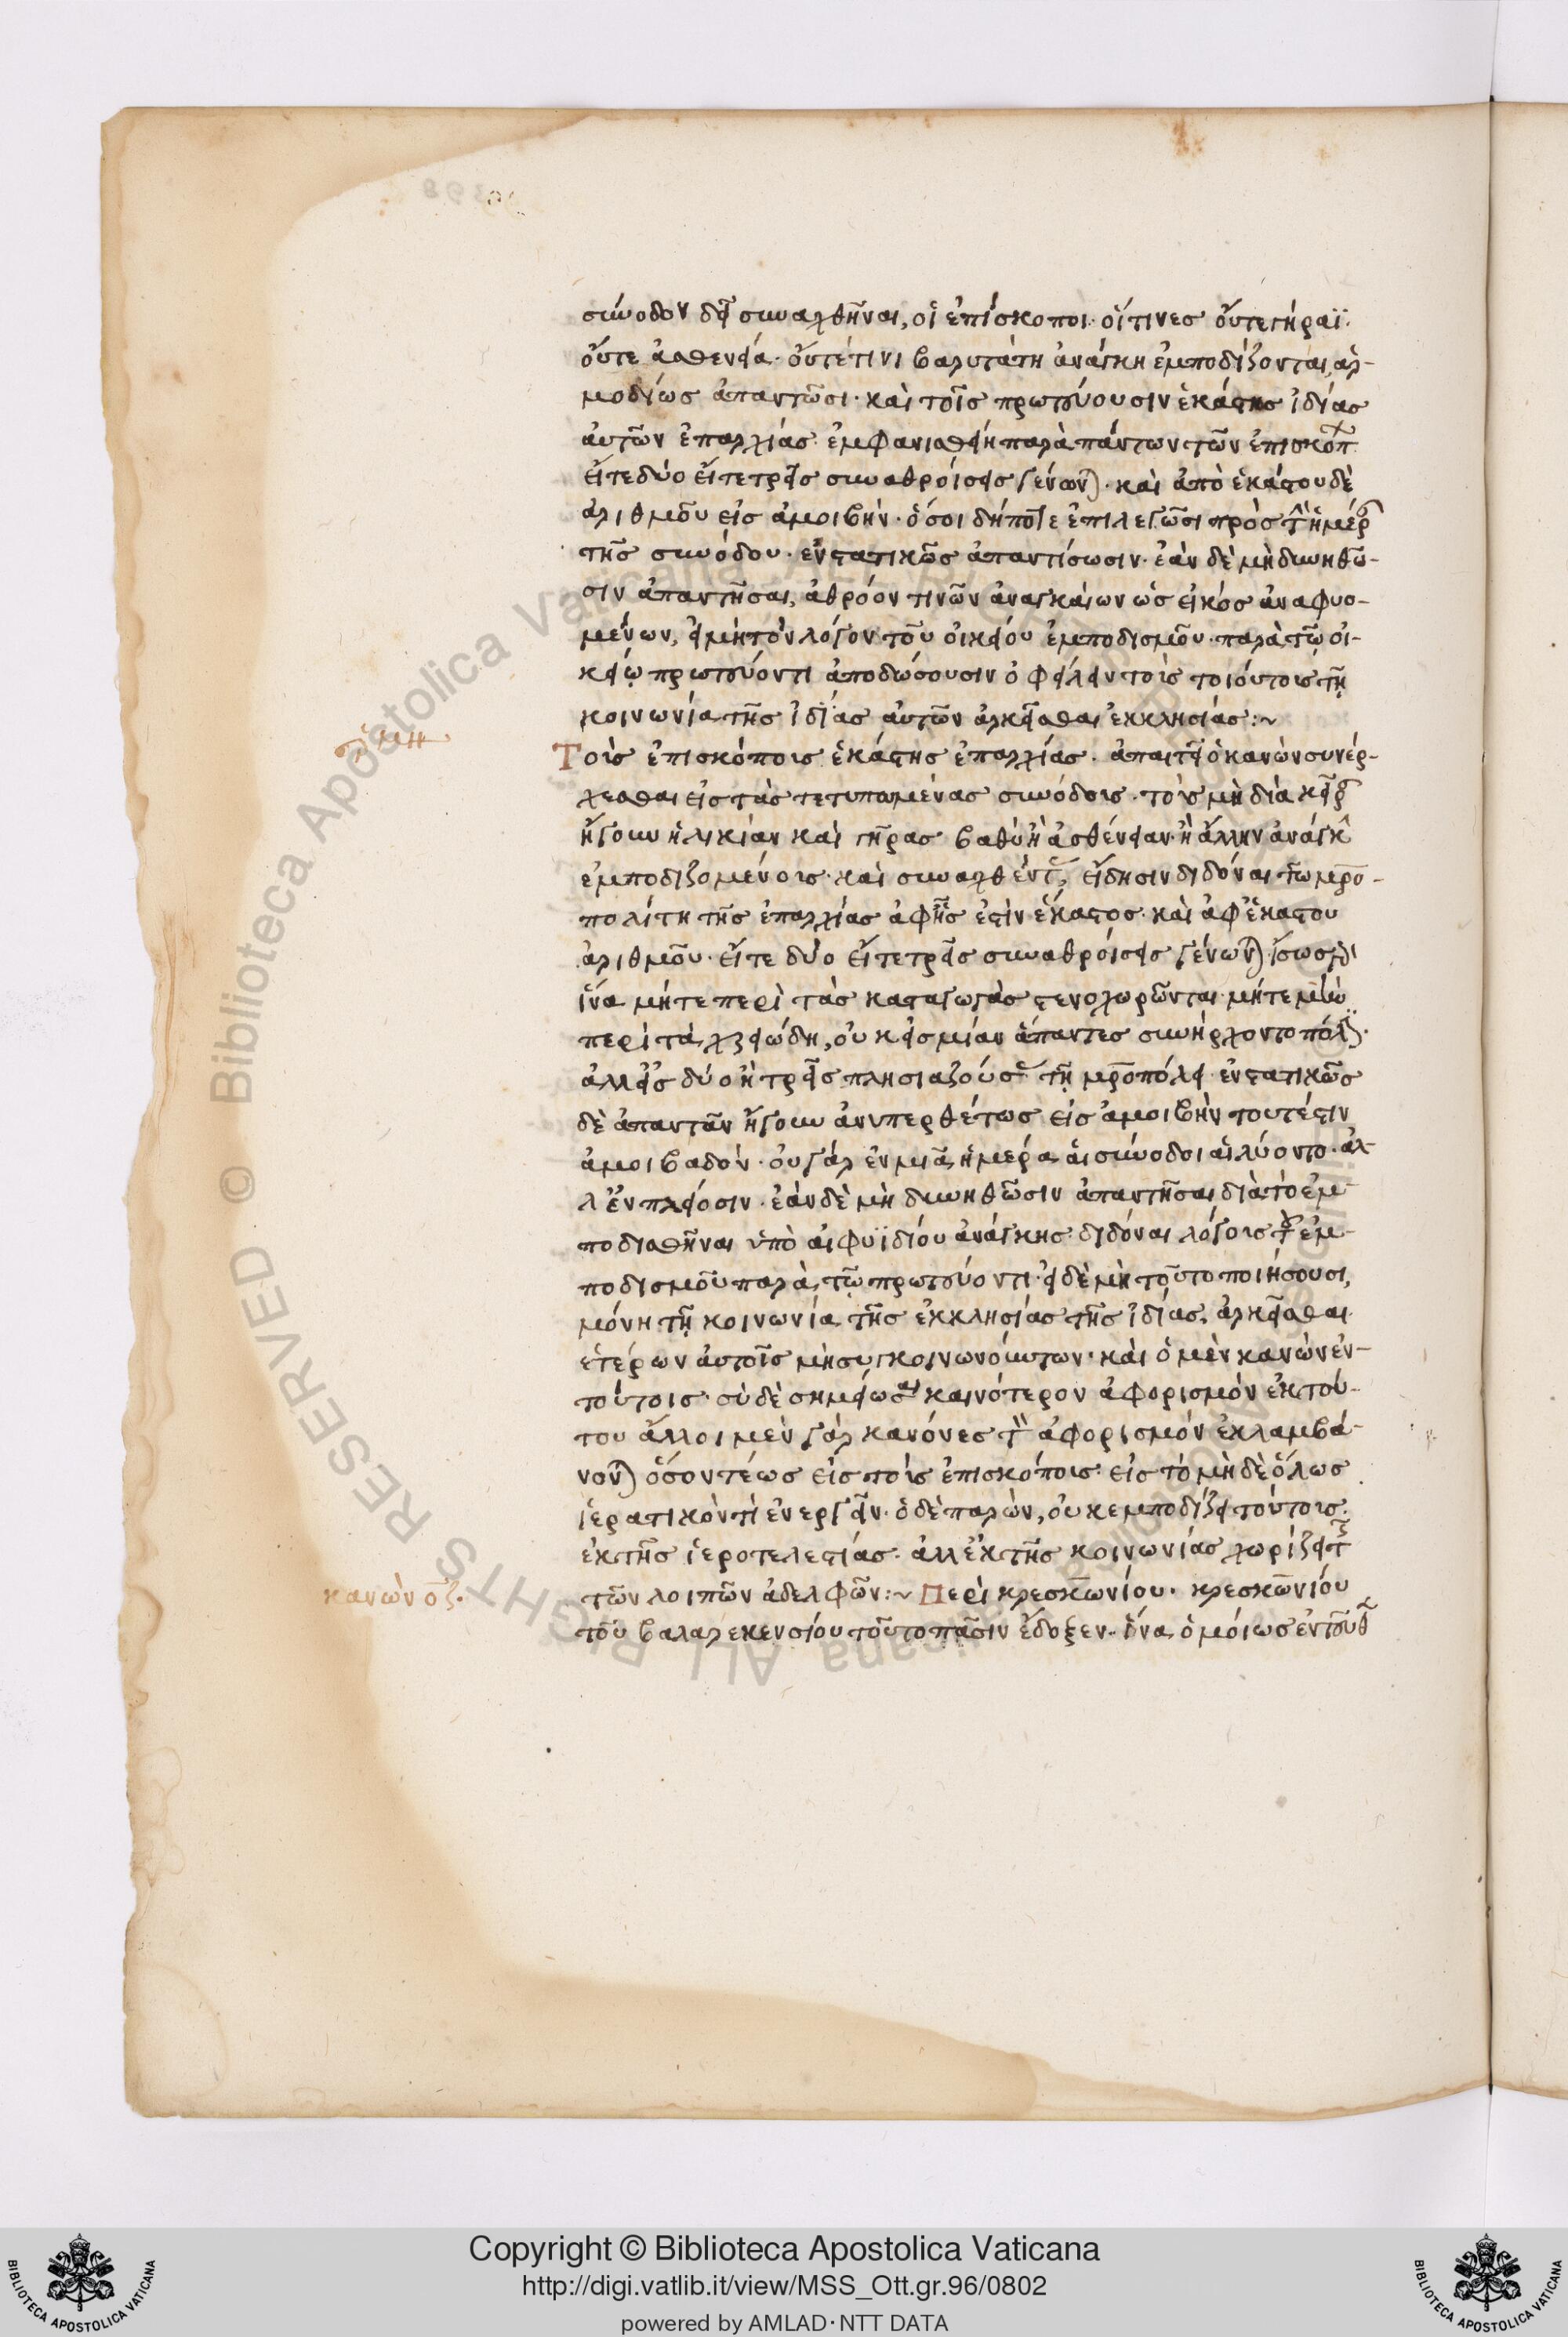 σύνοδον δεῖ συναχθῆναι, οἱ ἐπίσκοποι· οἵτινες οὔτε γήραϊ·
οὔτε ἀσθενεία· οὔτέ τινι βαρυτάτη ἀνάγκη ἐμποδίζονται, ἁρ-
μοδίως ἀπαντῶσι· καὶ τοῖς πρωτεύουσιν ἑκάστης ἰδίας
αὐτῶν ἐπαρχίας· ἐμφανισθείη παρὰ πάντων τῶν ἐπισκόπ
εἴτε δύο εἴτε τρεῖς συναθροίσεις γένωνται· καὶ ἀπὸ ἑκάστου δὲ
ἀριθμοῦ εἰς ἀμοιβὴν· ὅσοι δήποτε ἐπιλεγῶσι πρὸς τὴν ἡμέραν
τῆς συνόδου· ἐνστατικῶς ἀπαντίσωσιν· ἐὰν δὲ μὴ δυνηθῶ-
σιν ἀπαντῆσαι, ἀθρόον τινῶν ἀναγκαίων ὡς εἰκὸς ἀναφυο-
μένων, εἰ μὴ τὸν λόγον τοῦ οἰκείου ἐμποδισμοῦ· παρὰ τῷ οἰ-
κείῳ πρωτεύοντι ἀποδώσουσιν ὀφείλειν τοὺς τοιούτους τῇ
κοινωνία τῆς ἰδίας αὐτῶν ἀρκεῖσθαι ἐκκλησίας:~
Τοὺς ἐπισκόπους ἑκάστης ἐπαρχίας· ἀπαιτεῖ ὁ κανὼν συνέρ-
χεσθαι εἰς τὰς τετυπωμένας συνόδους· τοὺς μὴ διὰ
ἤγουν ἡλικίαν καὶ γῆρας βαθὺ ἢ ἀσθένειαν· ἢ ἄλλην ἀνάγκην
ἐμποδιζομένους· καὶ συναχθέντας, εἴδησιν διδόναι τῶ μητρο-
πολίτη τῆς ἐπαρχίας ἀφ' ἧς ἐστὶν ἕκαστος· καὶ ἀφ' ἑκάστου
ἀριθμοῦ· εἴτε δύο εἴτε τρεῖς συναθροίσεις γένωνται· ἴσως
ἵνα μήτε περὶ τὰς καταγωγὰς στενοχωρῶνται· μήτε μὴν
περὶ τὰ χρειώδη, οὐκ εἰς μίαν ἅπαντες συνήρχοντο πόλιν·
ἀλλ' εἰς δύο ἢ τρεῖς πλησιαζούσας τῇ μητροπόλει· ἐνστατικῶς
δὲ ἀπαντᾶν ἤγουν ἀνυπερθέτως εἰς ἀμοιβὴν τουτέστιν
ἀμοιβαδόν· οὐ γὰρ ἐν μιᾶ ἡμέρα αἱ σύνοδοι ἐλύοντο· ἀλ-
λ' ἐν πλείοσιν· ἐὰν δὲ μὴ δυνηθῶσιν ἀπαντῆσαι διὰ τὸ ἐμ-
ποδισθῆναι ὑπὸ αἰφνιδίου ἀνάγκης διδόναι λόγους τοῦ ἐμ-
ποδισμοῦ παρὰ τῷ πρωτεύοντι· εἰ δὲ μὴ τοῦτο ποιήσουσι,
μόνη τῇ κοινωνία τῆς ἐκκλησίας τῆς ἰδίας, ἀρκεῖσθαι·
ἑτέρων αὐτοῖς μὴ συγκοινωνούντων· καὶ ὁ μὲν κανὼν ἐν
τούτοις· σὺ δὲ σημείωσαι καινότερον ἀφορισμὸν ἐκ τού-
του ἄλλοι μὲν γὰρ κανόνες τὸν ἀφορισμὸν ἐκλαμβά-
νονται ὅσον τέως εἰς τοὺς ἐπισκόπους· εἰς τὸ μὴ δὲ ὅλως
ἱερατικόν τι ἐνεργεῖν· ὁ δὲ παρὼν, οὐκ ἐμποδίζει τούτους·
ἐκ τῆς ἱεροτελεστίας· ἀλλ' ἐκ τῆς κοινωνίας χωρίζει
κανὼν οζ·
τῶν λοιπῶν ἀδελφῶν:~ Περὶ κρεσκωνίου· κρεσκωνίου
τοῦ βαλαρεκενσίου τοῦτο πᾶσιν ἔδοξεν· ἵνα ὁμοίως ἐντεῦθ
Copyright © Biblioteca Apostolica Vaticana
http://digi.vatlib.it/view/MSS_Ott.gr.96/0802
powered by AMLAD·NTT DATA
BIBLIOTECA APOSTOLICA VATICANA
BIBLIOTECA APOSTOLICA VATICANA